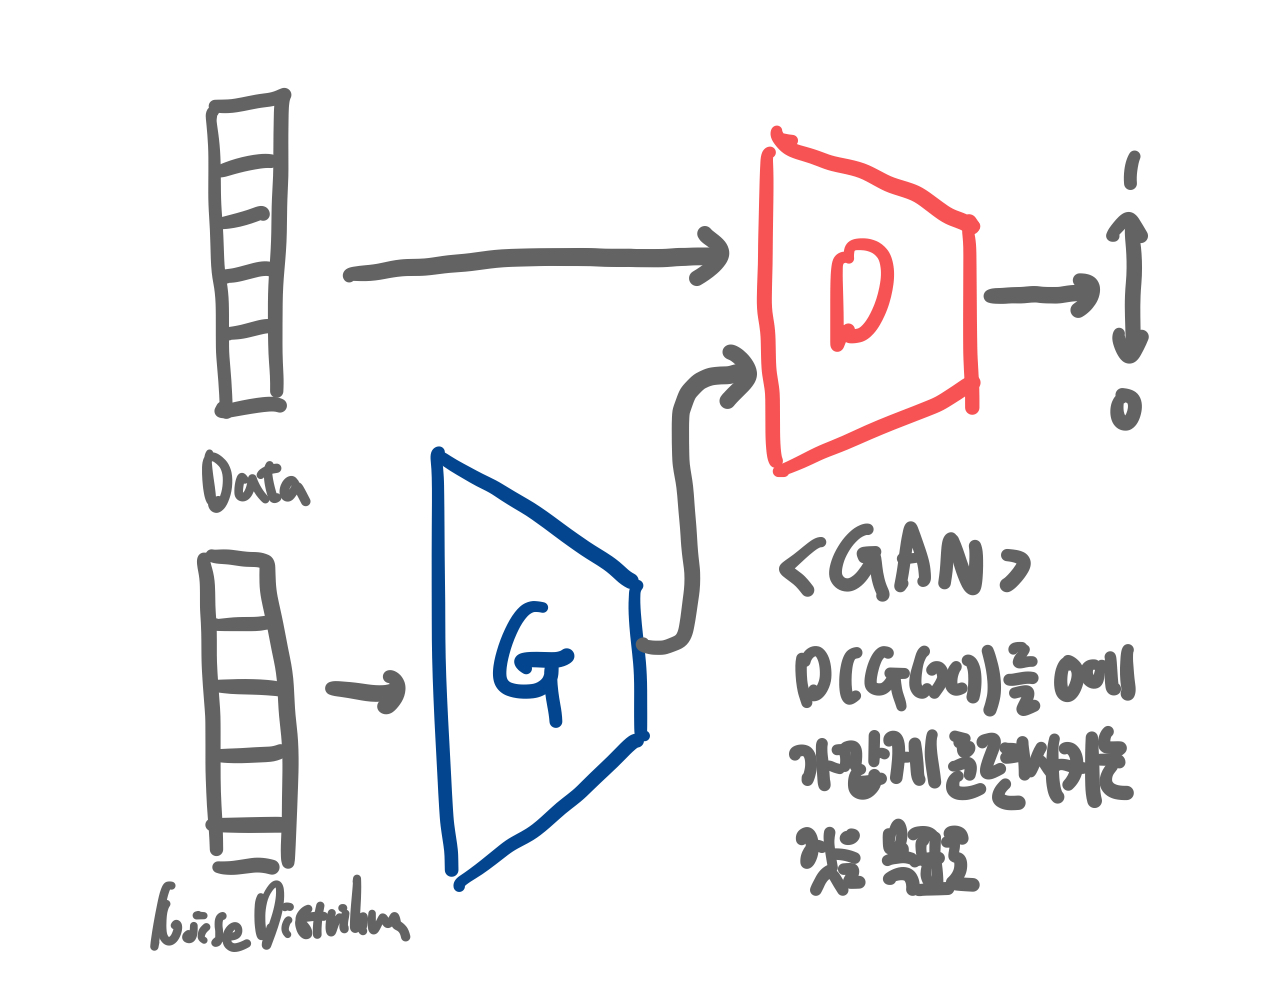 Data
Noise Distribution
G
D
1
0
<GAN>
D(G(x))를 0에
가깝게 훈련시키는
것을 목표